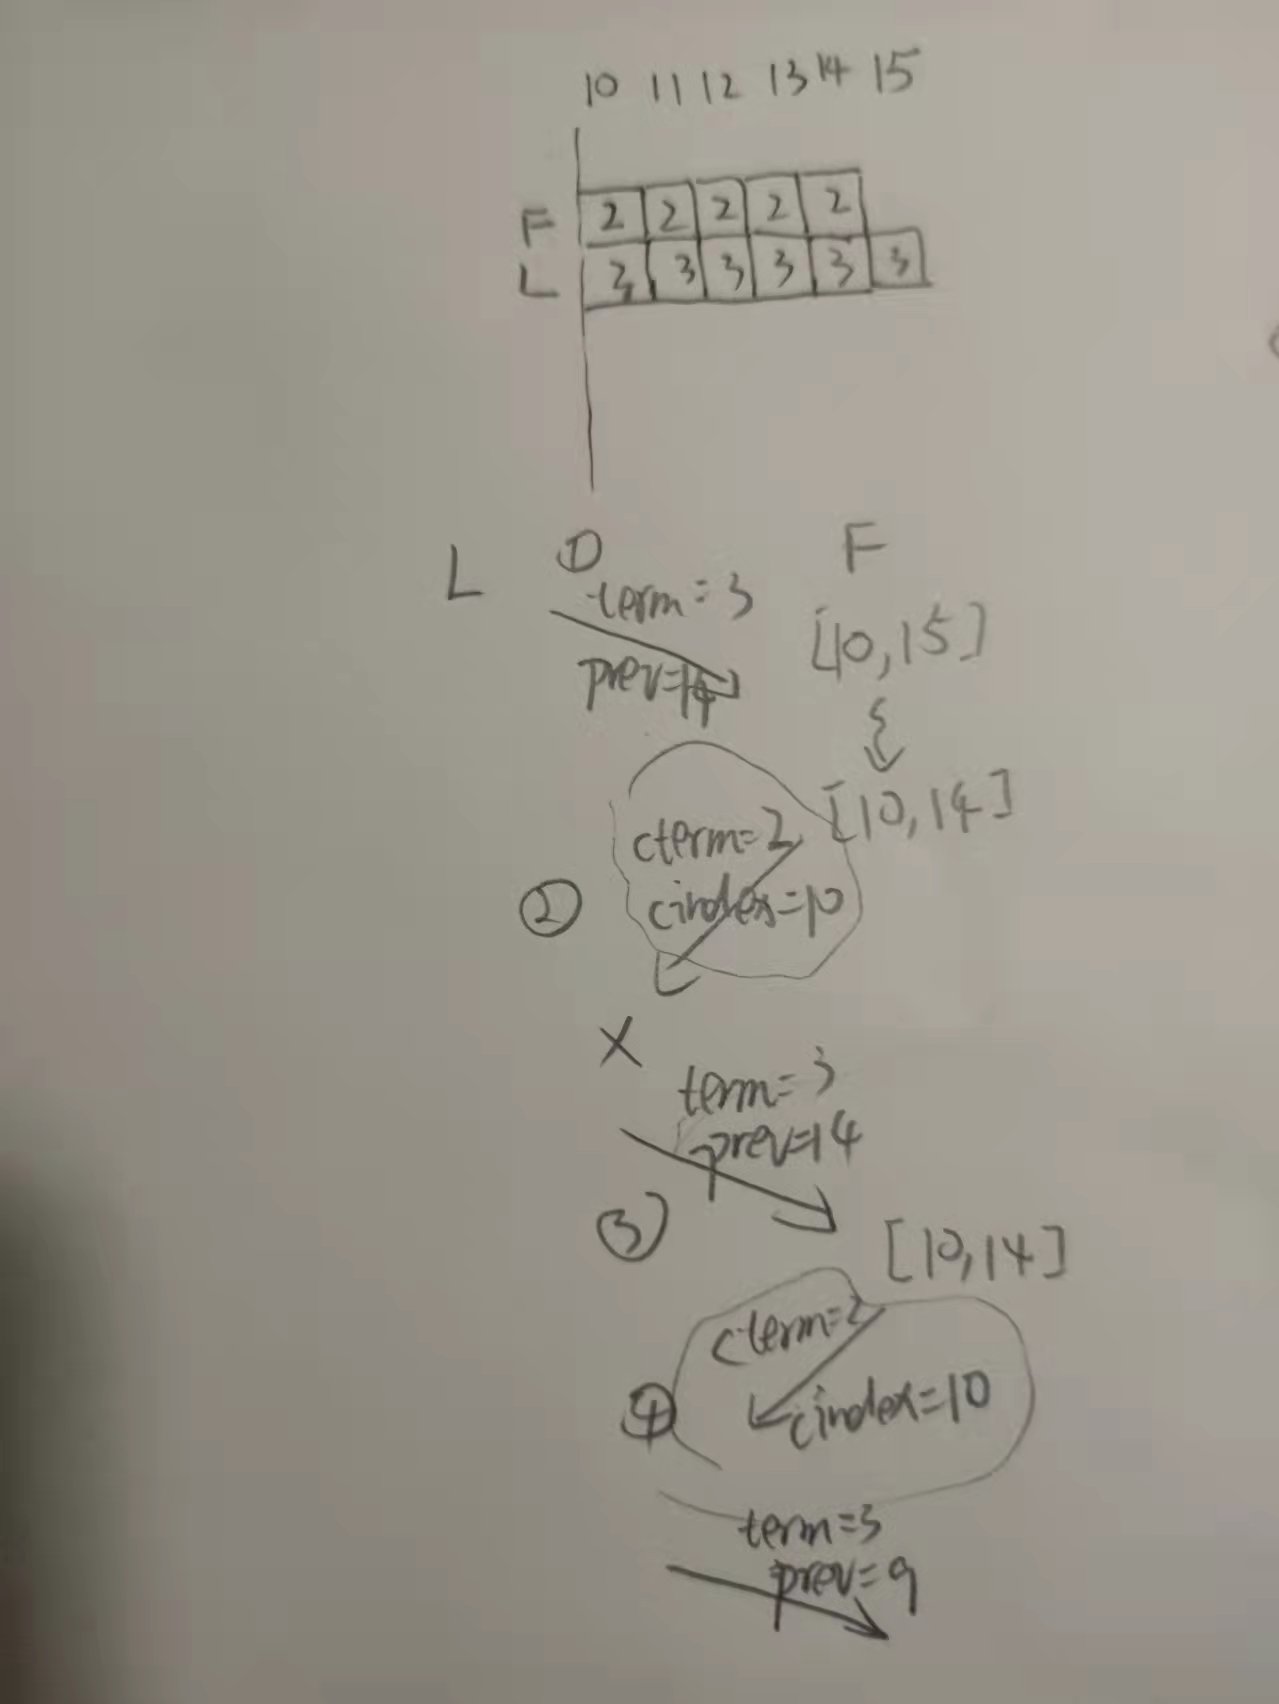 10 11 12 13 14 15
F 2 2 2 2 2
L 3 3 3 3 3 3
L ① F
term=3
prev=14
[10,15]
[10,14]
cterm=2
② cindex=10
X
term=3
prev=14
③
[10,14]
cterm=2
④ cindex=10
term=3
prev=9